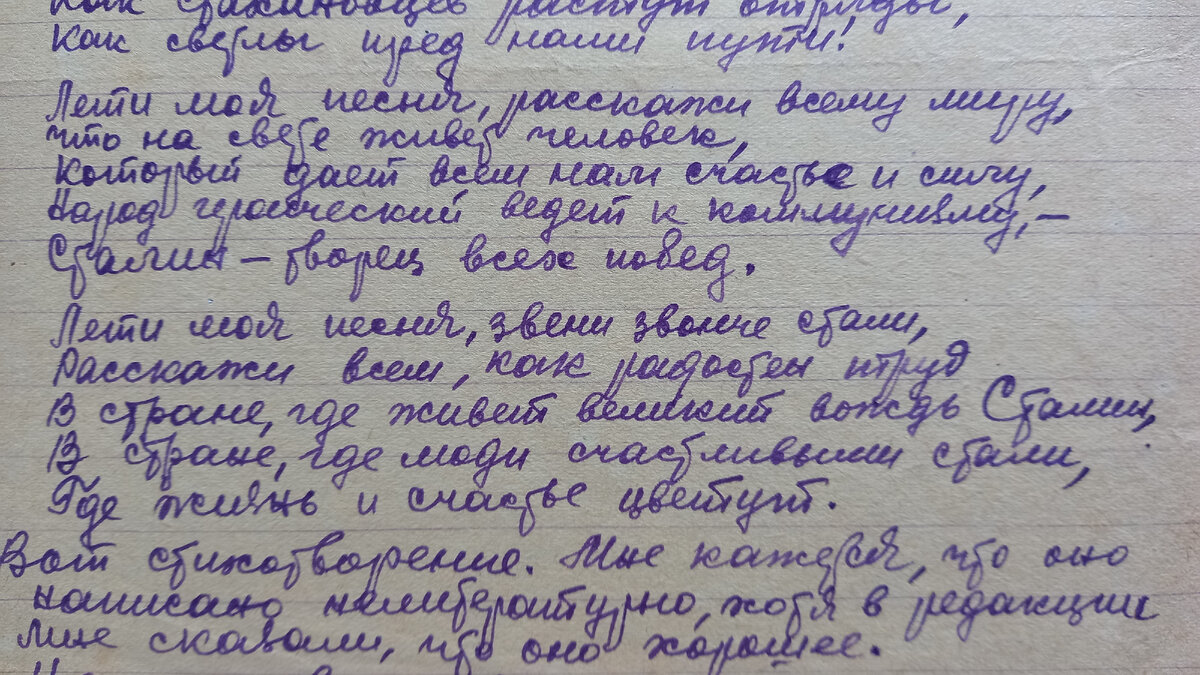 Как стахановцев растут отряды,
Как светлы пред нами пути!
Лети моя песня, расскажи всему миру,
что на свете живет человек,
Который дает всем нам счастье и силу,
Народ героический ведет к коммунизму, –
Сталин – творец всех побед.
Лети моя песня, звени звонче стали,
Расскажи всем, как радостен труд
В стране, где живет великий вождь Сталин,
В стране, где люди счастливыми стали,
Где жизнь и счастье цветут.
Вот стихотворение. Мне кажется, что оно
написано нелитературно, хотя в редакции
мне сказали, что оно хорошее.